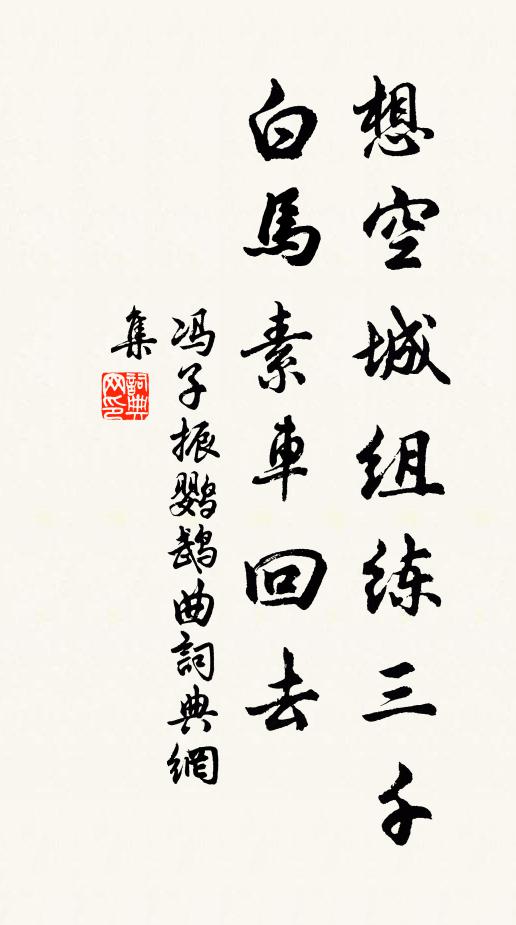 想空城组练三千
白馬素車回去
冯子振鹦鹉曲詞典網
集
詞典網印